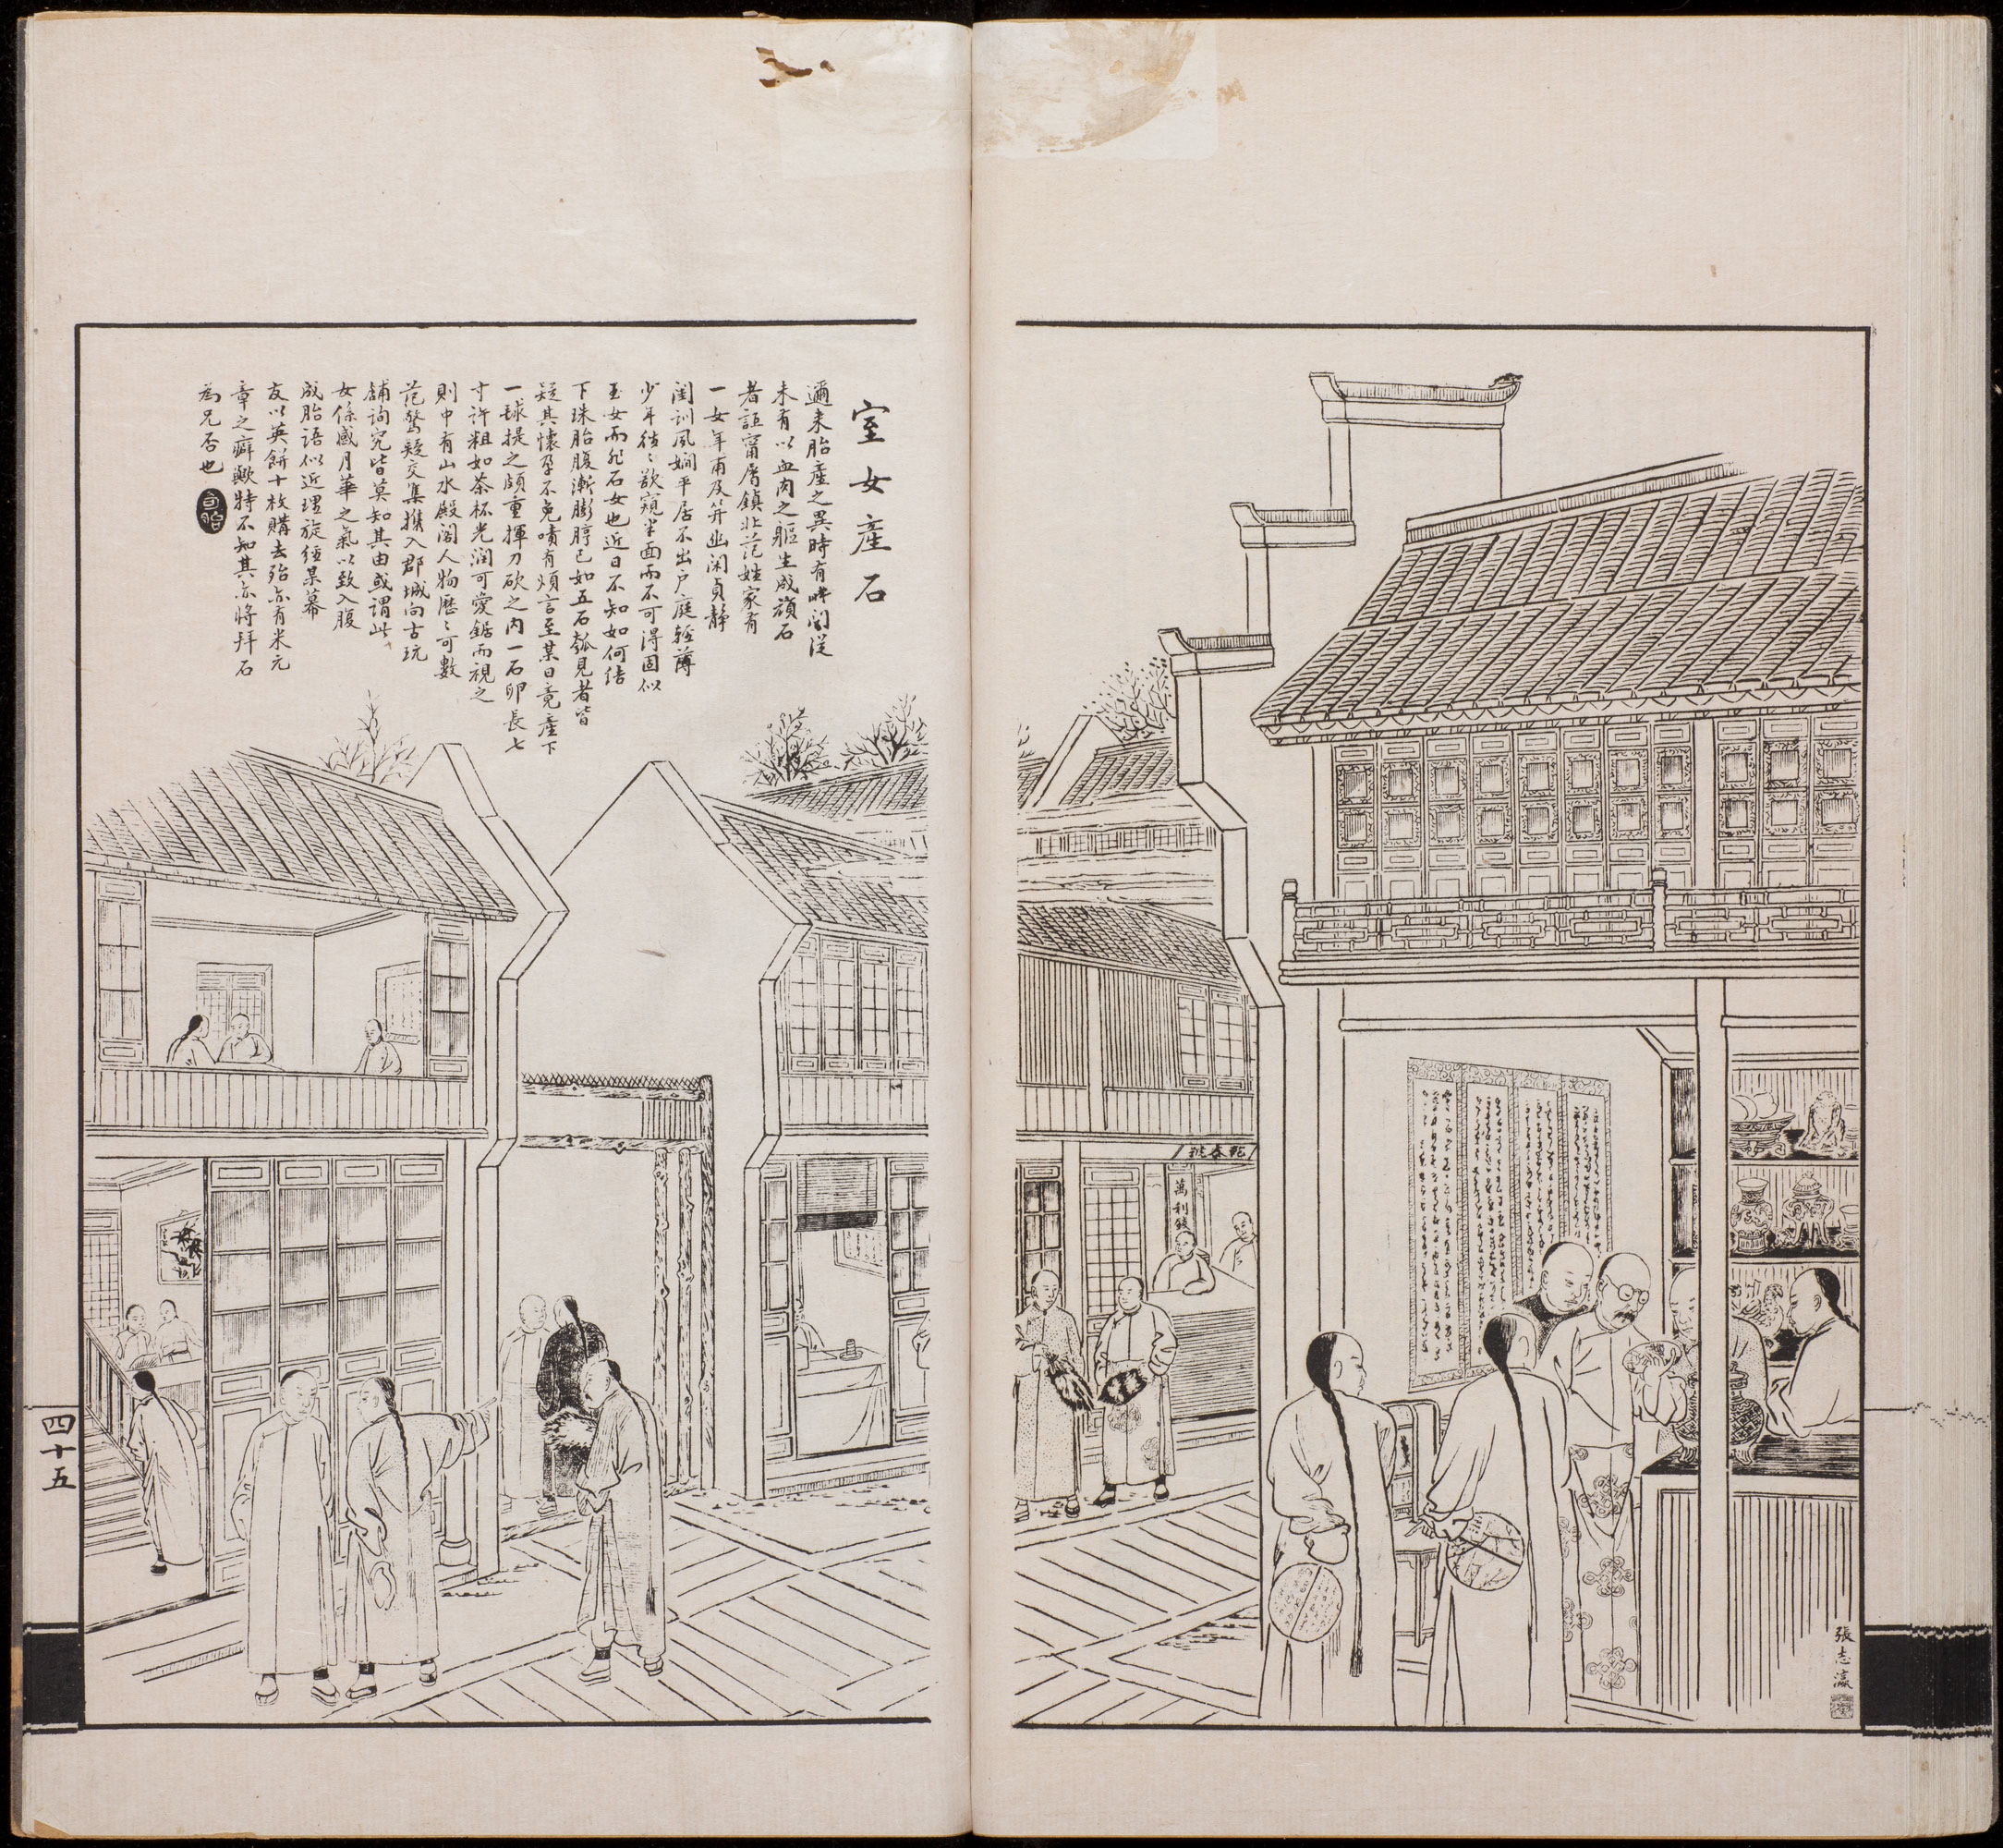 室女產石
邇來胎產之異時有所聞從
未有以血肉之軀生成頑石
者詎甯屬鎮北范姓家有
一女年甫及笄幽閑貞靜
閨訓風嫻平居不出戶庭輕薄
少年往〻欲窺半面而不可得固似
玉女而非石女也近日不知如何結
下珠胎腹漸膨脝已如五石瓠見者皆
疑其懷孕不免嘖有煩言至某日竟產下
一球提之頗重揮刀砍之內一石卵長七
寸許粗如茶杯光潤可愛鋸而視之
則中有山水殿閣人物歷〻可數
范驚疑交集攜入郡城向古玩
舖詢究皆莫知其由或謂此
女係感月華之氣以致入腹
成胎語似近理旋經某幕
友以英餅十枚購去殆亦有米元
章之癖歟特不知其亦將拜石
為兄否也
萬利錢
張志瀛
四十五